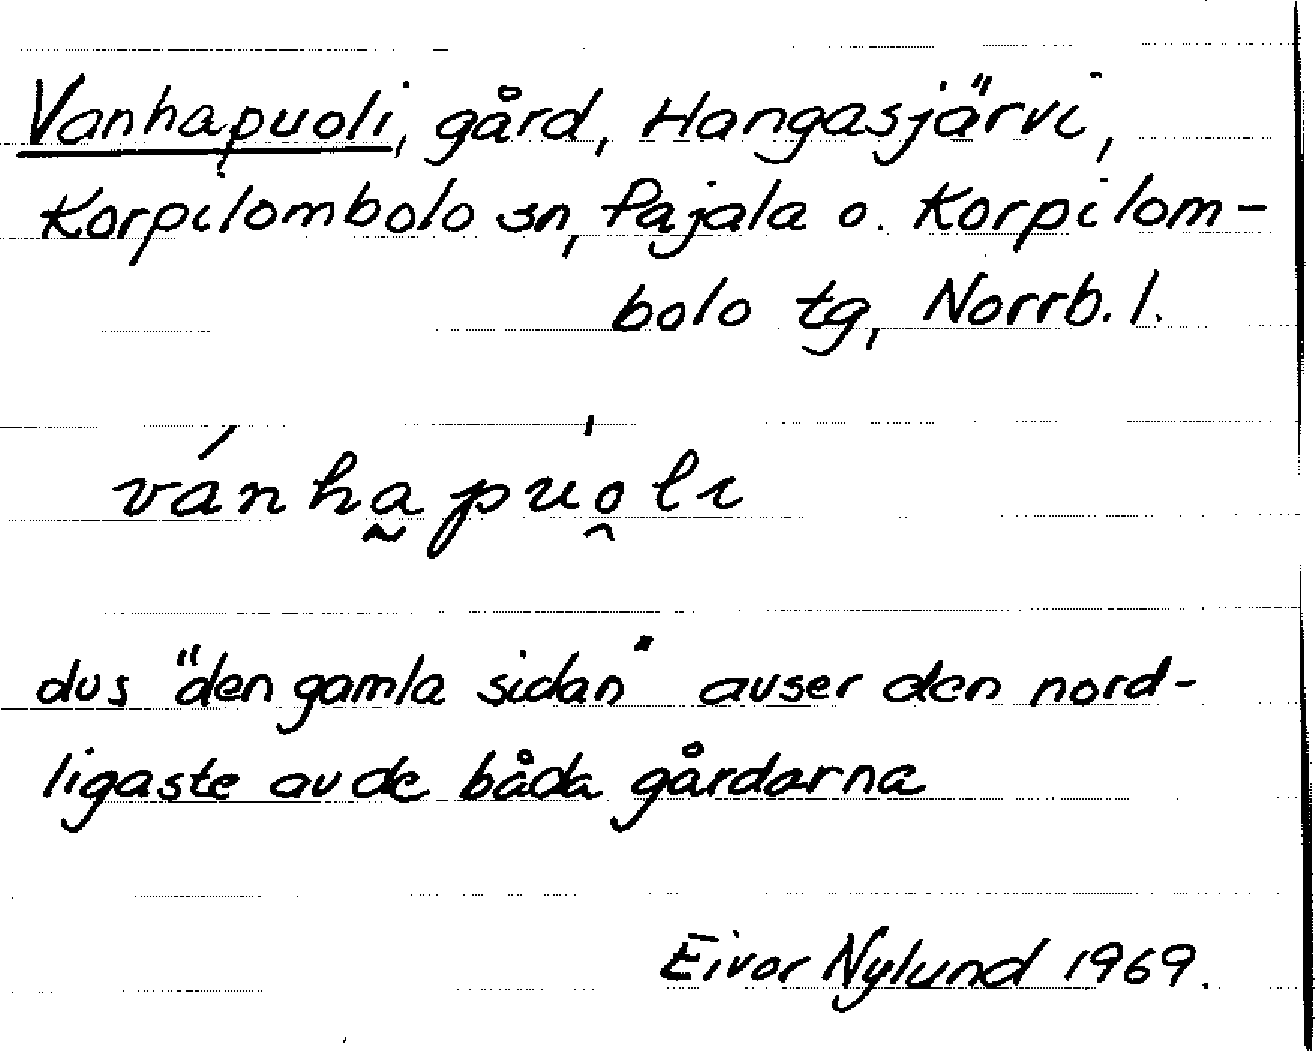 Vanhapuoli, gård, Hangasjärvi,
Korpilombolo sn, Pajala o. Korpilom-
bolo tg, Norrb. l.
vánha̰pu̍o̯li
dvs "den gamla sidan" avser den nord-
ligaste av de båda gårdarna
Eivor Nylund 1969.